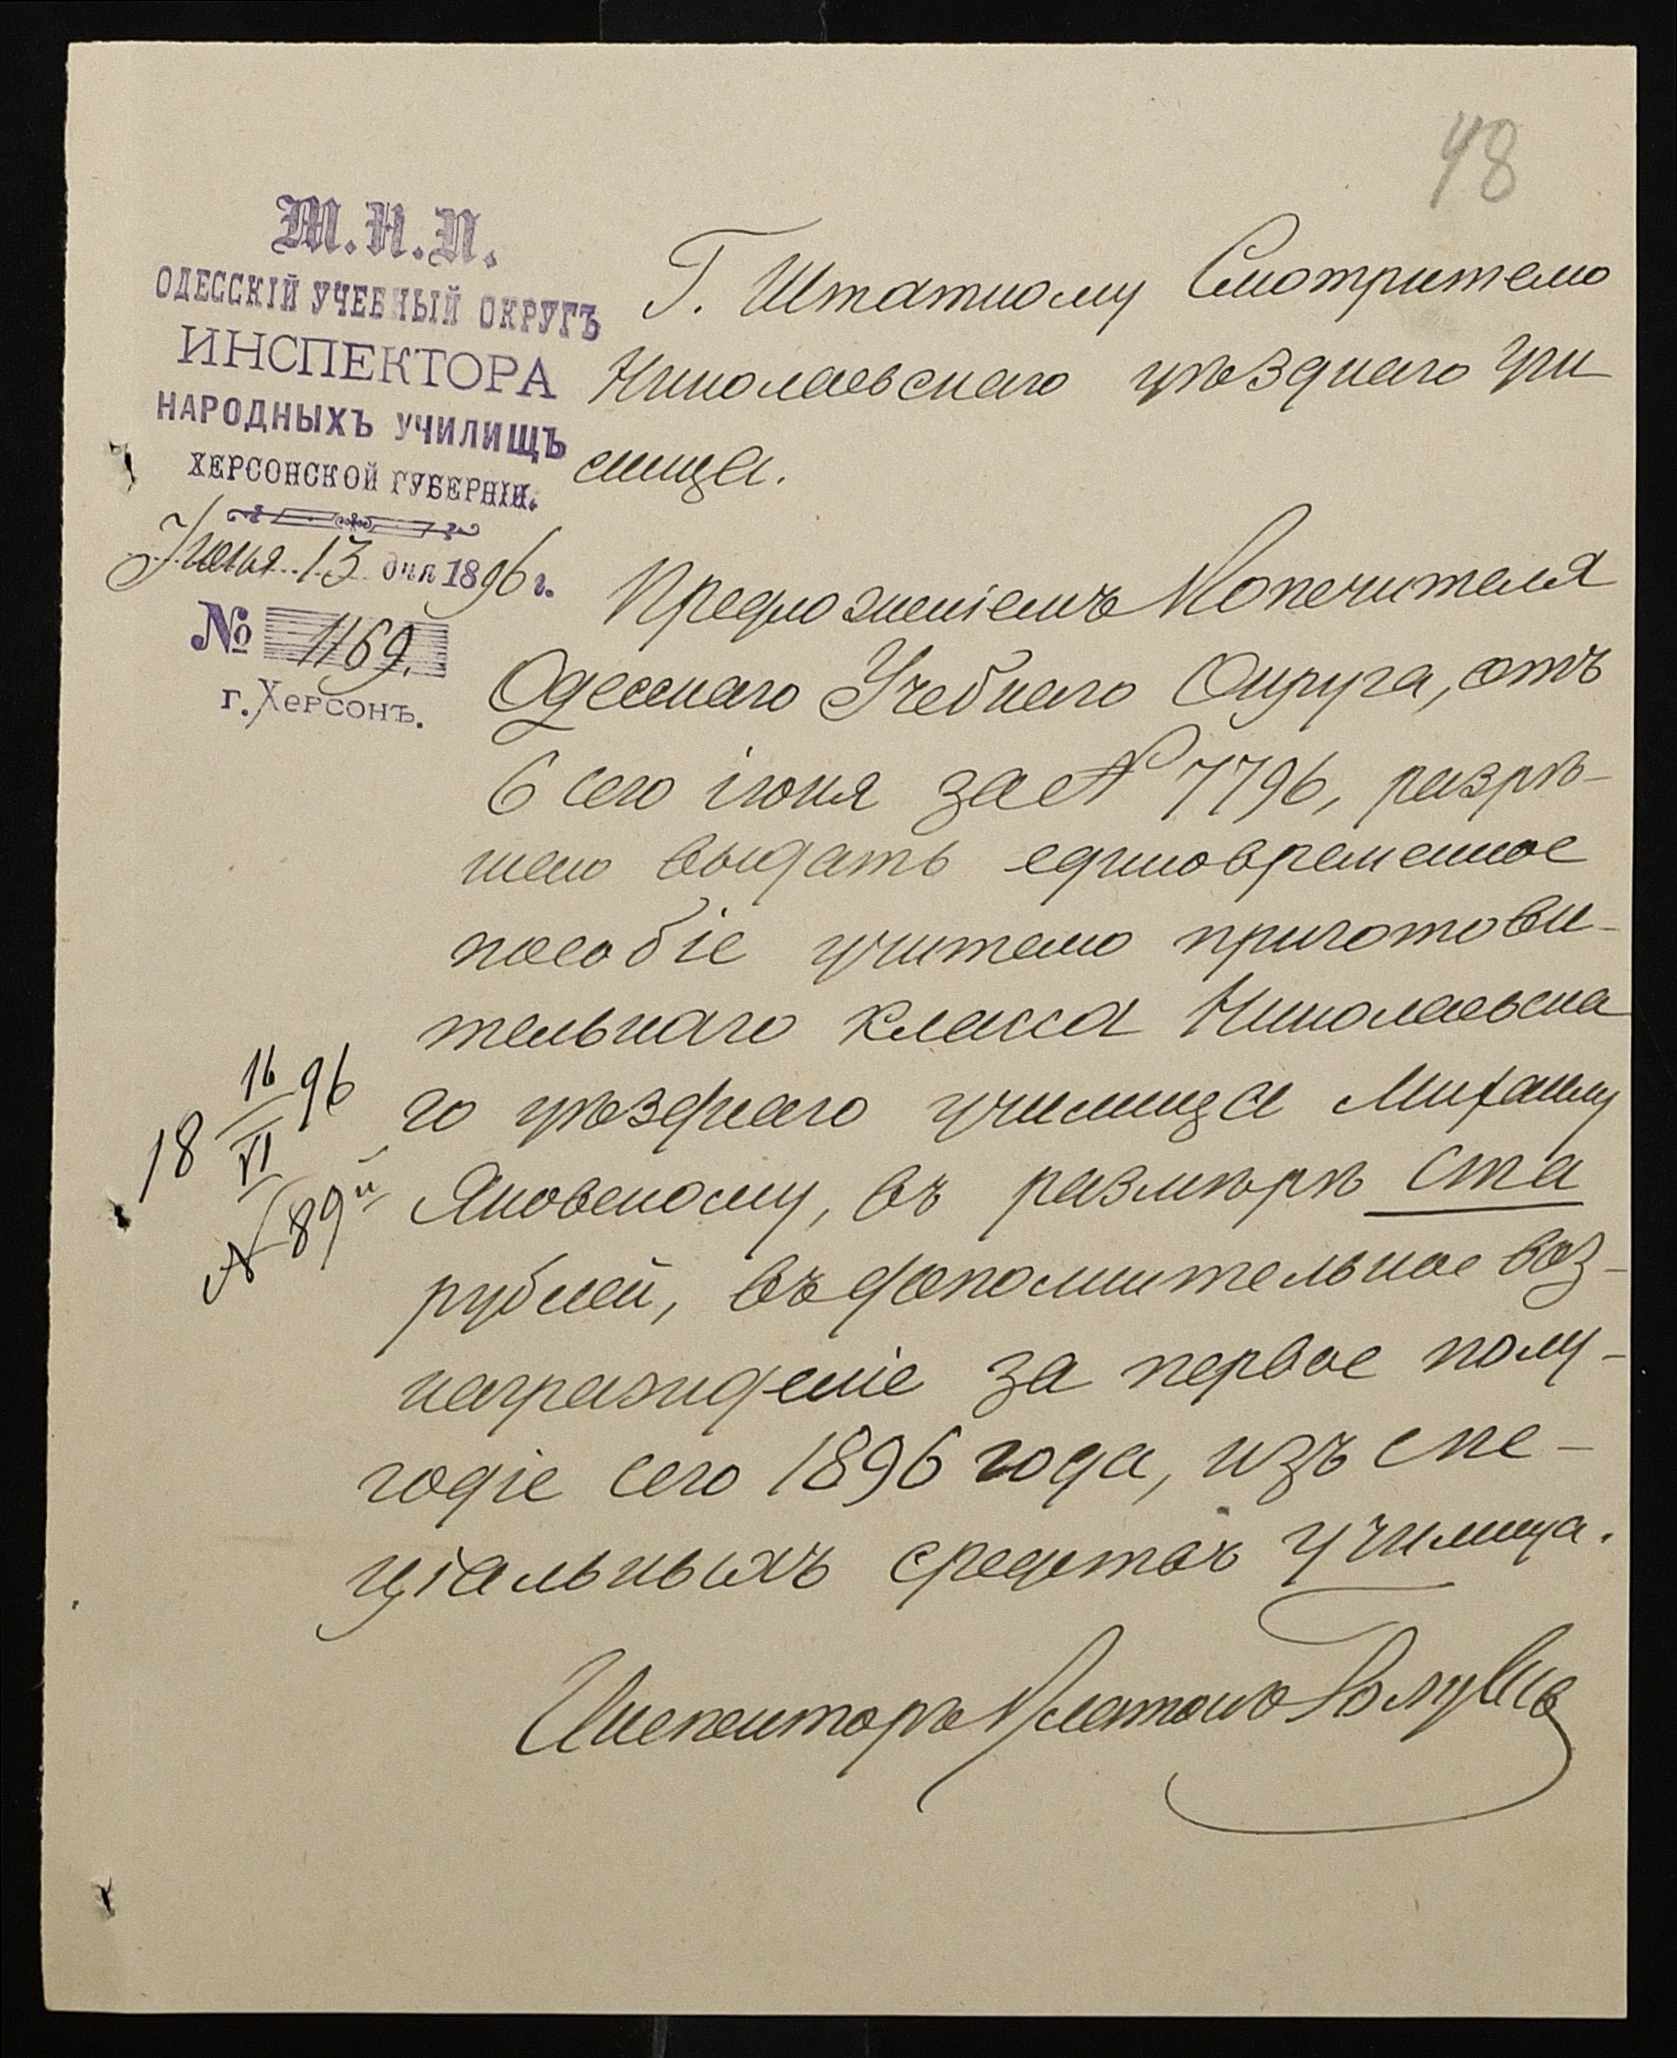 48
М.Н.П.
ОДЕССКІЙ УЧЕБНЫЙ ОКРУГЪ
ИНСПЕКТОРА
НАРОДНЫХЪ УЧИЛИЩЪ
ХЕРСОНСКОЙ ГУБЕРНІИ.
Іюня 13 дня 1896 г.
№ 1169.
г. Херсонъ.
Г. Штатному Смотрителю
Николаевскаго уѣзднаго Учи
лища.
Предложеніемъ Попечителя
Одесскаго Учебнаго Округа, отъ
6 сего іюня за № 7796, разрѣ-
шено выдать единовременное
пособіе учителю приготови-
тельнаго класса Николаевска
го уѣзднаго училища Михаилу
Яновскому, въ размѣрѣ ста
рублей, въ дополнительное воз-
награжденіе за первое полу-
годіе сего 1896 года, изъ спе-
ціальныхъ средствъ училища.
18 16/VI 96
№ 89й
Инспекторъ Платонъ